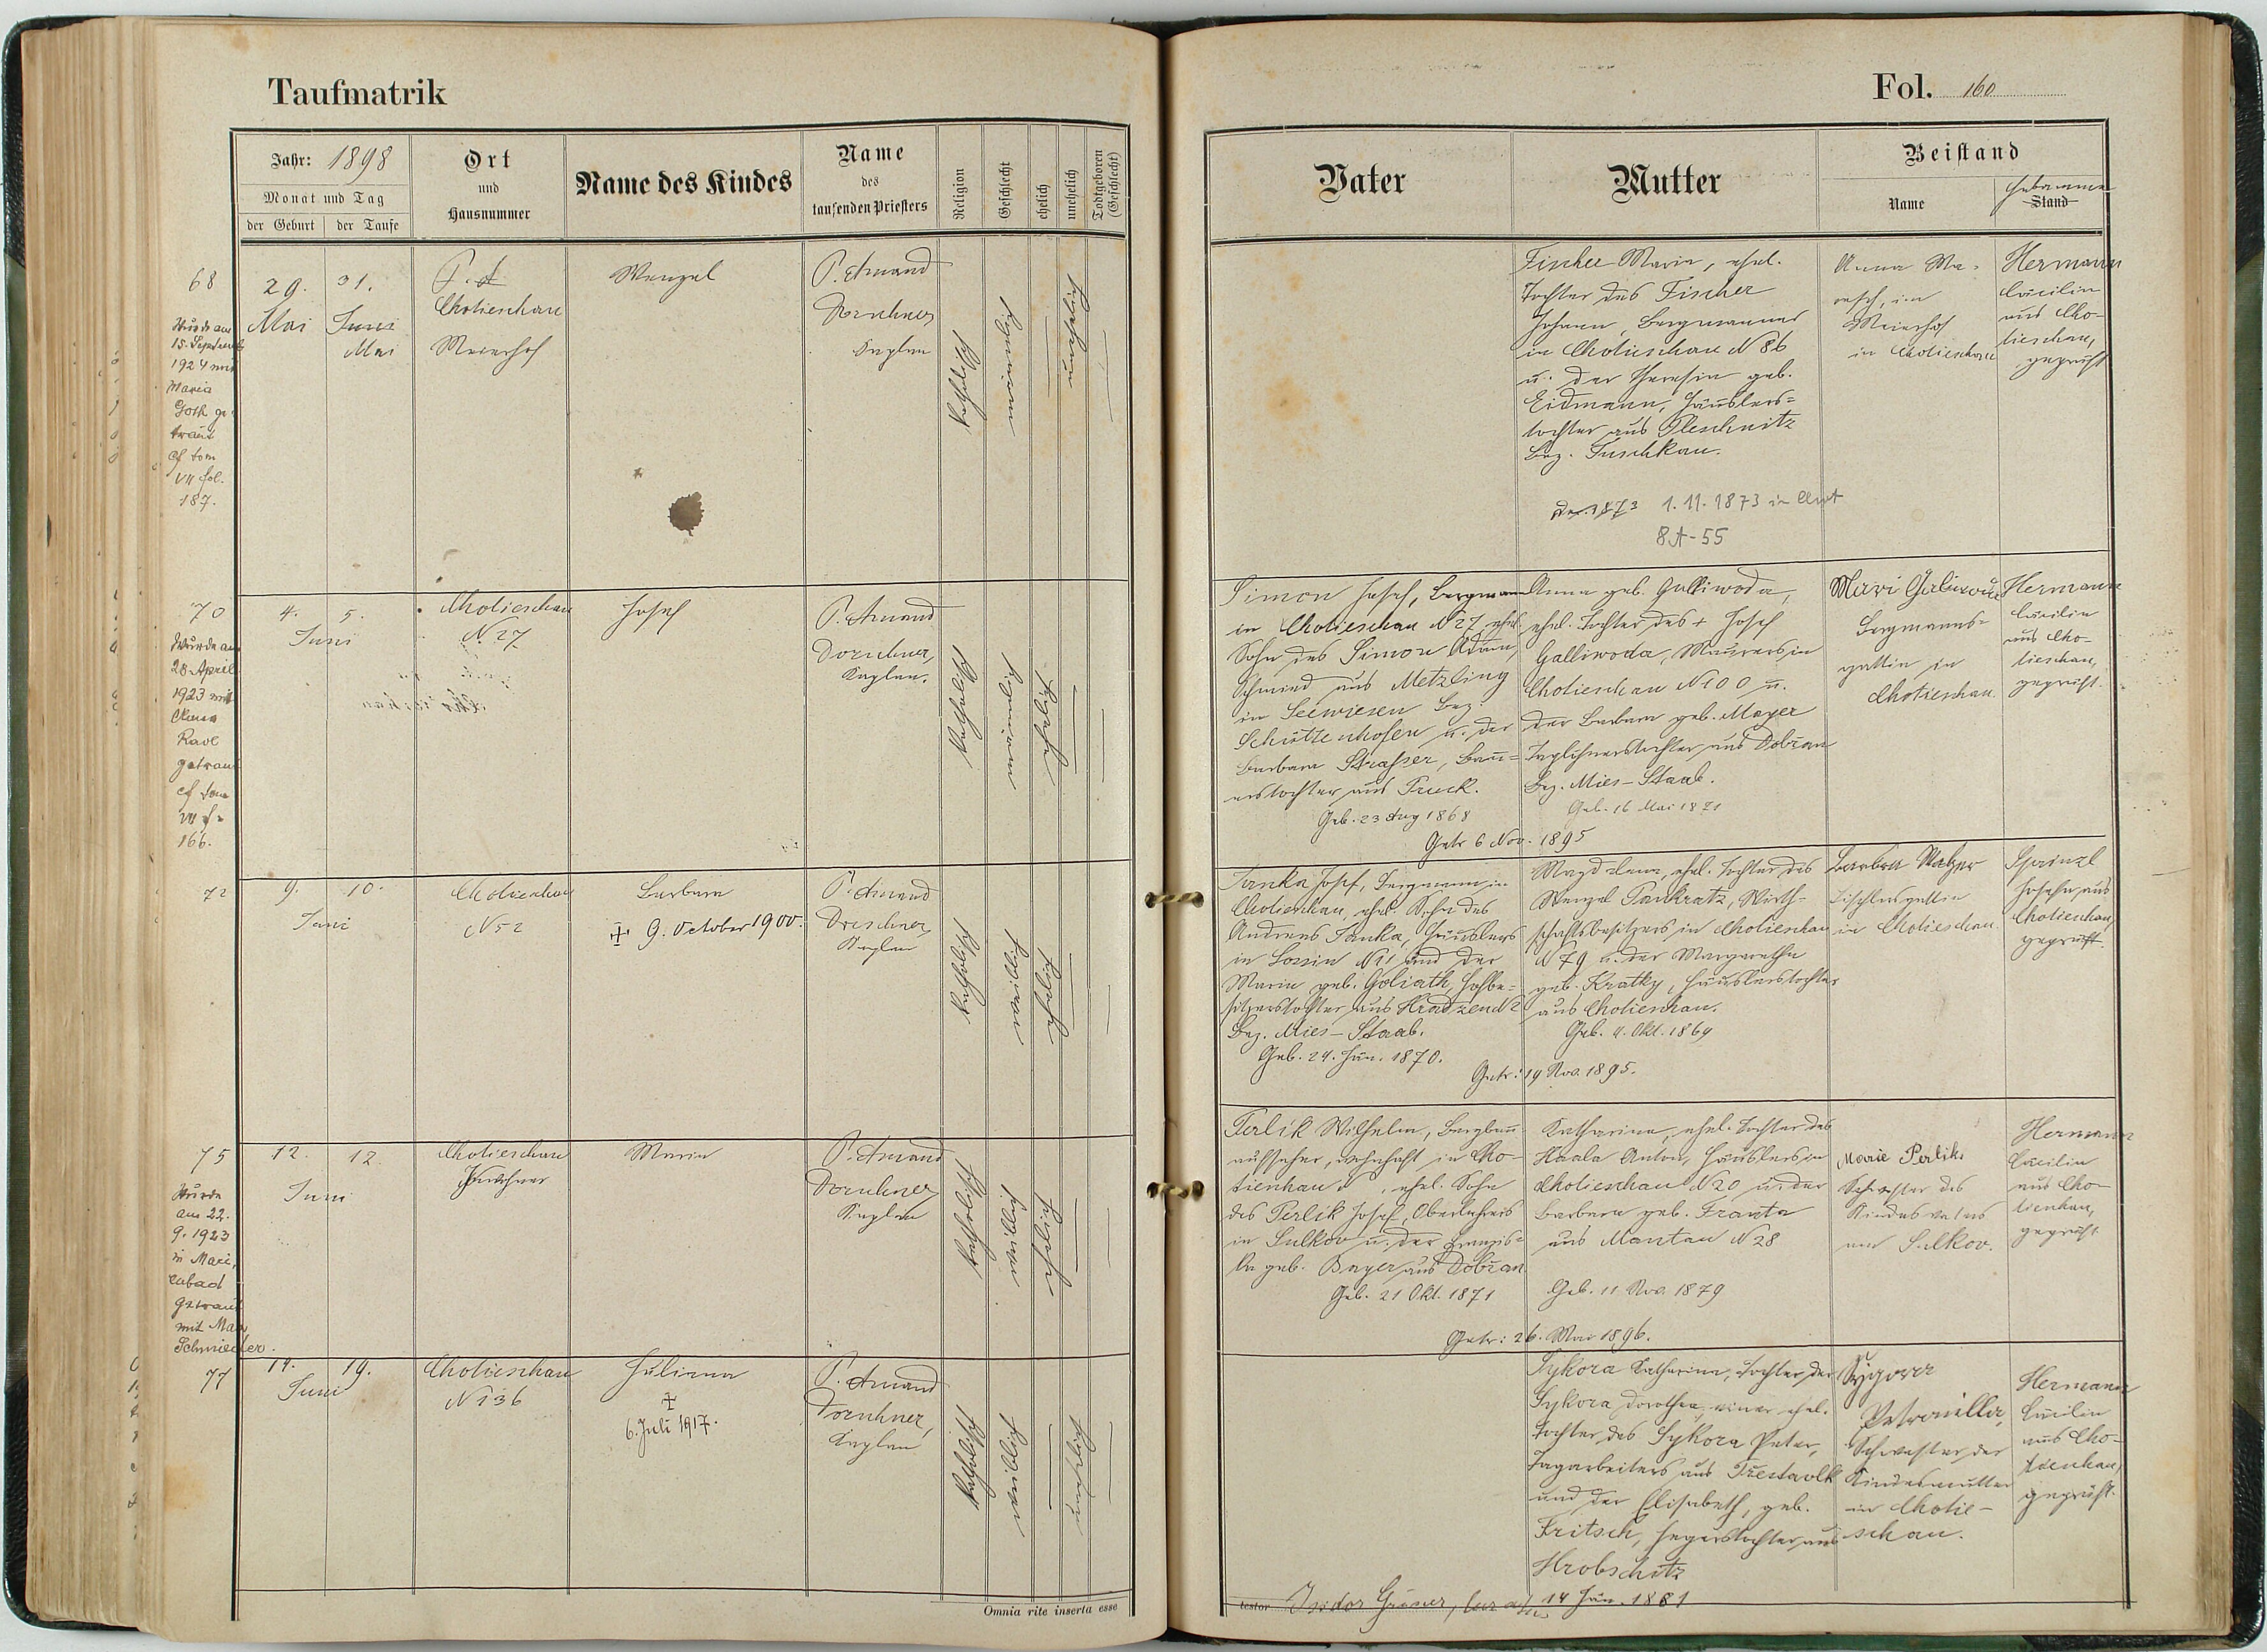 Taufmatrik
Jahr: 1898
Monat und Tag
der Geburt
der Taufe
Ort
und
Hausnummer
Name des Kindes
Name
des
taufenden Priesters
Religion
Geschlecht
ehelich
unehelich
Todtgeboren
(Geschlecht)
68
Wurde am
15. September
1924 mit
Maria
Goth ge
traut
cf tom
VII fol.
187.
29.
Mai
31.
Juni
Mai
Chotieschau
Meierhof
Wenzel
P. Amand
Dorschner
Kaplan
katholisch
männlich
unehelich
70
Wurde am
28. April
1923 mit
getraut
cf tom
166.
4.
5.
Juni
Chotieschau
N. 27
Josef
P. Amand
Dorschner,
Kaplan.
katholisch
männlich
ehelich
72
9.
10.
Juni
Chotieschau
N 52
Barbara
+ 9. October 1900.
P. Amand
Dorschner
Kaplan
katholisch
weiblich
ehelich
75
Wurde
am 22.
9. 1923
in Mari,
enbad
getraut
mit Max
Schmieder.
12.
12
Juni
Chotieschau
Maria
P. Amand
Dorschner
Kaplan
katholisch
weiblich
ehelich
77
14.
19.
Juni
Chotieschau
N 136
Juliana
+
6. Juli 1917.
P. Amand
Dorschner,
Kaplan
katholisch
weiblich
unehelich
Omnia rite inserta esse
Fol. 160
Vater
Mutter
Beistand
Name
Hebamme
Stand
Fischer Maria, ehel.
Tochter des Fischer
Johann, Bergmannes
in Chotieschau N 86
u. der Theresia geb.
Eidmann, Häuslers=
tochter aus Pleschnitz
Bez. Tuschkau.
1.11.1873 in
8A-55
Anna Ma=
resch, im
Meierhof
in Chotieschau
Hermann
Cäcilia
aus Cho-
tieschau,
geprüft
Simon Josef, Bergmann
in Chotieschau N 27, ehel.
Sohn des Simon Adam,
Schmied aus Metzling
in Seewiesen Bez.
Schüttenhofen u. der
Barbara Strasser, Bau=
erstochter aus Pruck.
Geb. 23 Aug 1868
Anna geb. Galliwoda,
ehel. Tochter des + Josef
Galliwoda, Maurers in
Chotieschau N 100 u.
der Barbara geb. Mayer
Taglöhnerstochter aus Dobřan
Bez. Mies-Staab.
Geb. 16 Mai 1871
Getr 6 Nov. 1895
Mari Galiwoda
Bergmanns=
gattin in
Chotieschau.
Hermann
Cäcilia
aus Cho-
tieschau,
geprüft.
Tanka Josef, Bergmann in
Chotieschau, ehel. Sohn des
Andreas Tanka, Häuslers
in Lossin N 11 und der
Maria geb. Goliath, Hofbe=
sitzerstochter aus Hradzen N 2
Bez. Mies-Staab.
Geb. 24. Jän. 1870.
Magdalena, ehel. Tochter des
Wenzel Pankratz, Wirth-
schaftsbesitzers in Chotieschau
N 79 u. der Margaretha
geb. Kratky, Häuslerstochter
aus Chotieschau.
Geb. 4. Okt. 1869
Getr: 19 Nov. 1895.
Barbara
Tischlersgattin
in Chotieschau.
Josefa aus
Chotieschau,
geprüft.
Perlik Wilhelm, Bergbau
aufseher, wohnhaft in Cho-
tieschau N , ehel. Sohn
des Perlik Josef, Oberlehrers
in Sulkov u. der Franzis=
ka geb. Bayer aus Dobřan
Geb. 21 Okt. 1871
Katharina, ehel. Tochter des
Haala Anton, Häuslers in
Chotieschau N 20 u. der
Barbara geb. Franta
aus Mantau N 28
Geb. 11 Nov. 1879
Getr: 26. Mai 1896.
Marie Perlik
Schwester des
Kindesvaters
aus Sulkov.
Hermann
Cäcilia
aus Cho-
tieschau,
geprüft
Sykora Katharina, Tochter der
Sykora Dorothea, einer ehel.
Tochter des Sykora Peter,
Tagarbeiters aus
und der Elisabeth, geb.
Fritsch, Hegerstochter aus
Hrobschitz
14 Jän. 1881
Sygora
Petronilla,
Schwester der
Kindesmutter
in Chotie-
schau.
Hermann
Cäcilia
aus Cho-
tieschau,
geprüft.
testor Isidor Gruner,